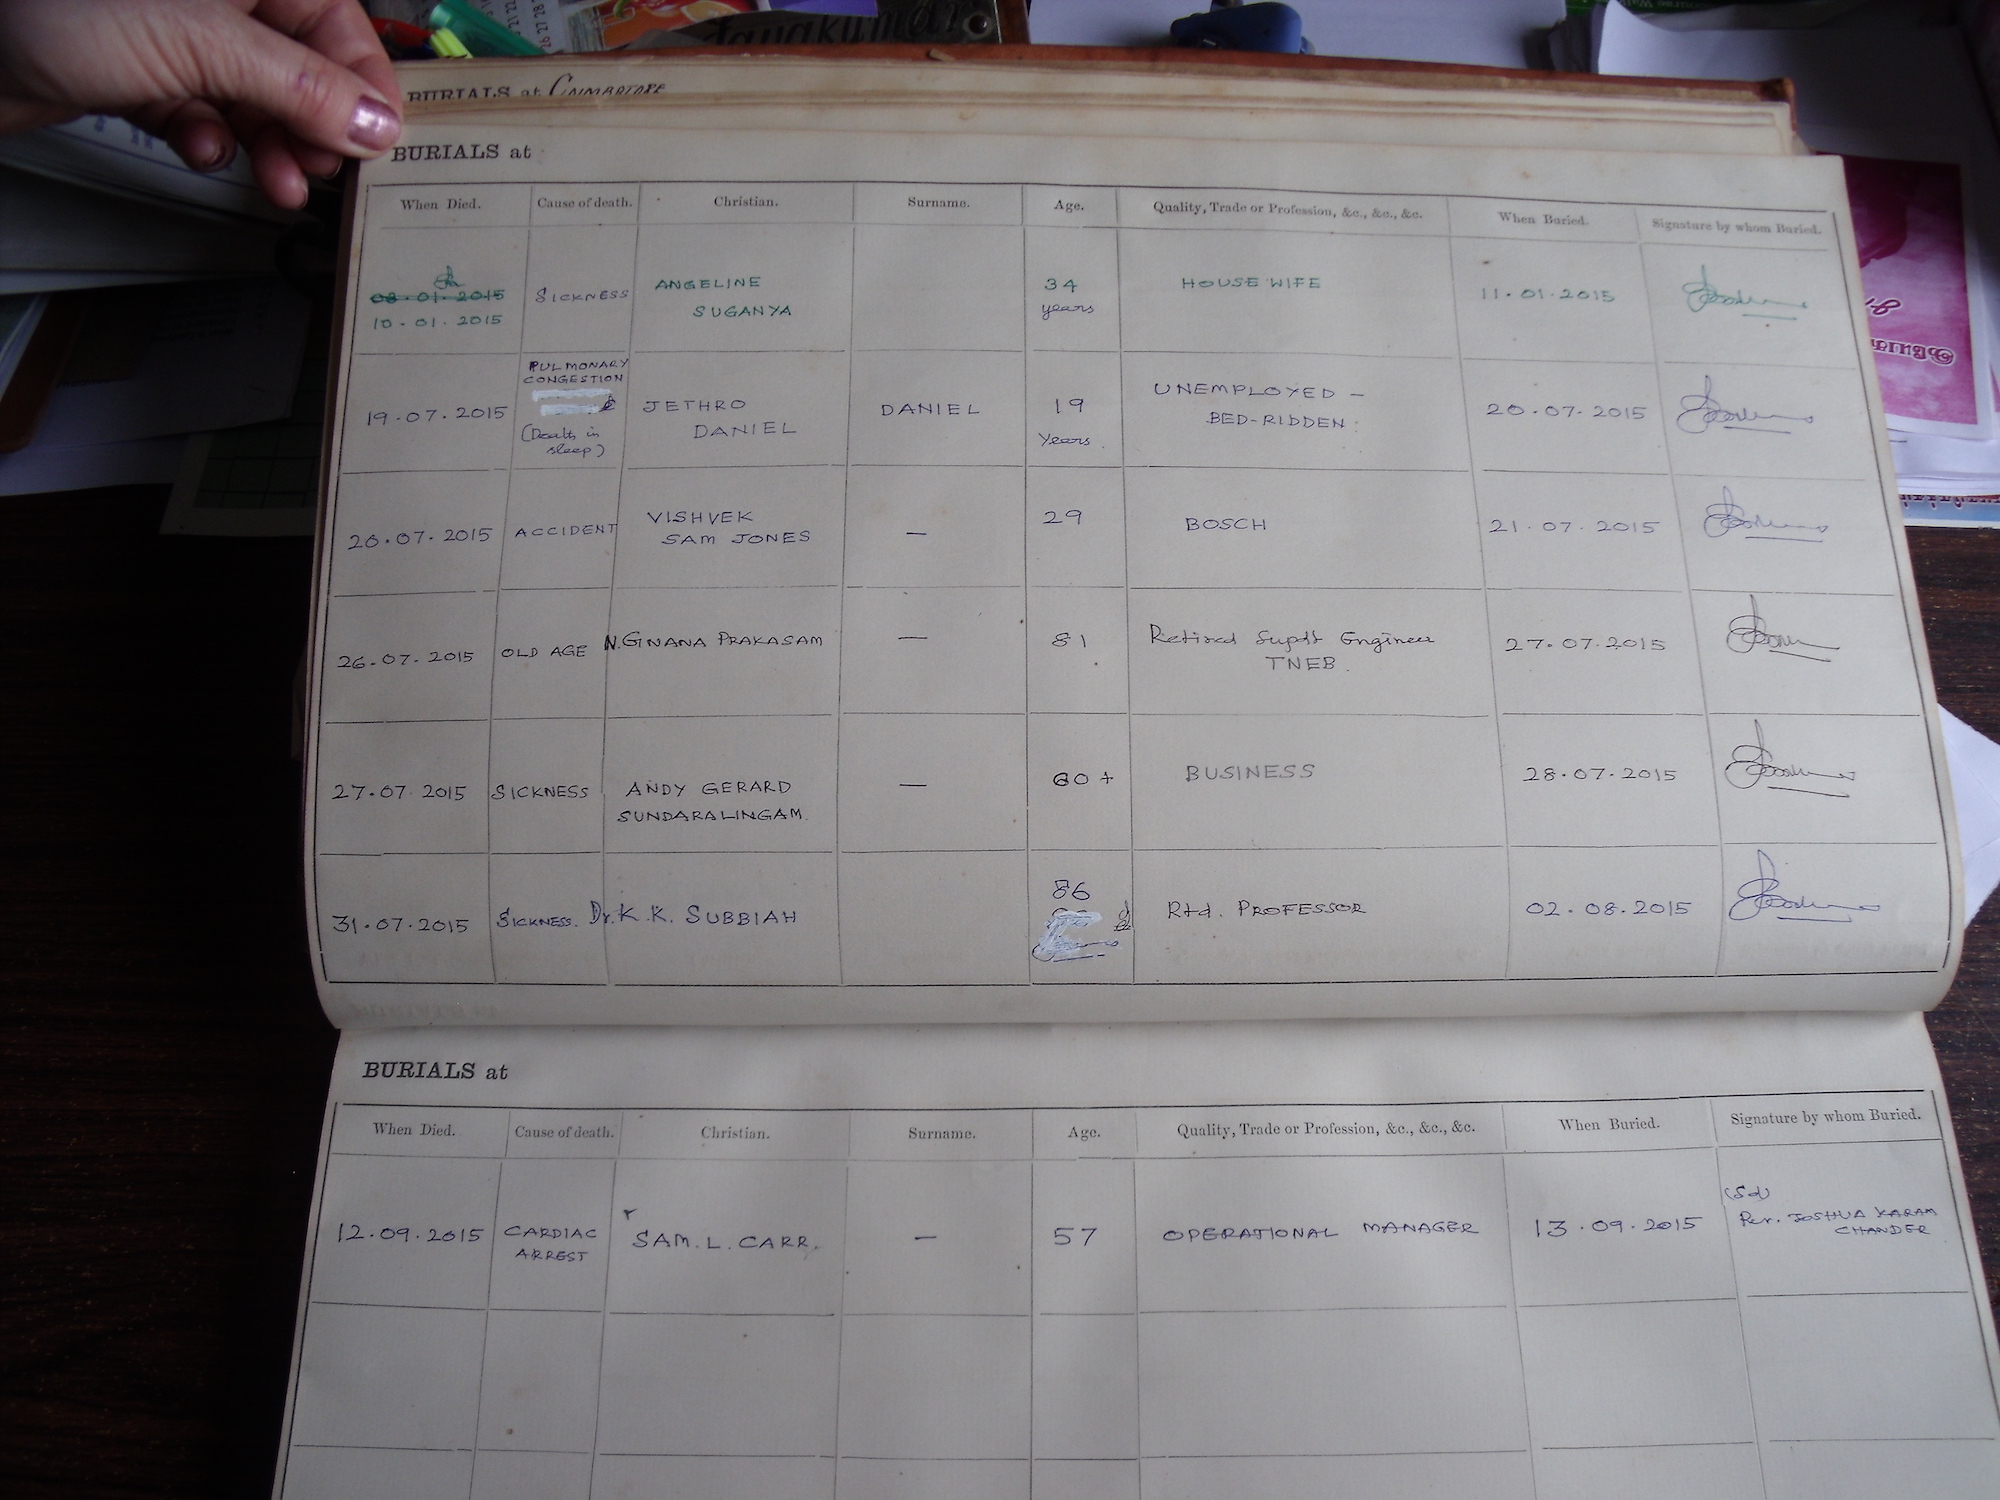 Jayakumar
BURIALS at COIMBATORE
BURIALS at
When Died. Cause of death. Christian. Surname. Age. Quality, Trade or Profession, &c., &c., &c. When Buried. Signature by whom Buried.
08.01.2015
10.01.2015 SICKNESS ANGELINE SUGANYA 34 years HOUSE WIFE 11.01.2015
19.07.2015 PULMONARY CONGESTION (Death in sleep) JETHRO DANIEL DANIEL 19 Years UNEMPLOYED - BED-RIDDEN. 20.07.2015
20.07.2015 ACCIDENT VISHVEK SAM JONES — 29 BOSCH 21.07.2015
26.07.2015 OLD AGE N. GNANA PRAKASAM — 81 Retired Supdt Engineer TNEB. 27.07.2015
27.07.2015 SICKNESS ANDY GERARD SUNDARALINGAM. — 60+ BUSINESS 28.07.2015
31.07.2015 SICKNESS. Dr. K. K. SUBBIAH 86 Rtd. PROFESSOR 02.08.2015
BURIALS at
When Died. Cause of death. Christian. Surname. Age. Quality, Trade or Profession, &c., &c., &c. When Buried. Signature by whom Buried.
12.09.2015 CARDIAC ARREST SAM. L. CARR. — 57 OPERATIONAL MANAGER 13.09.2015 (Sd) Rev. JOSHUA KARAM CHANDER